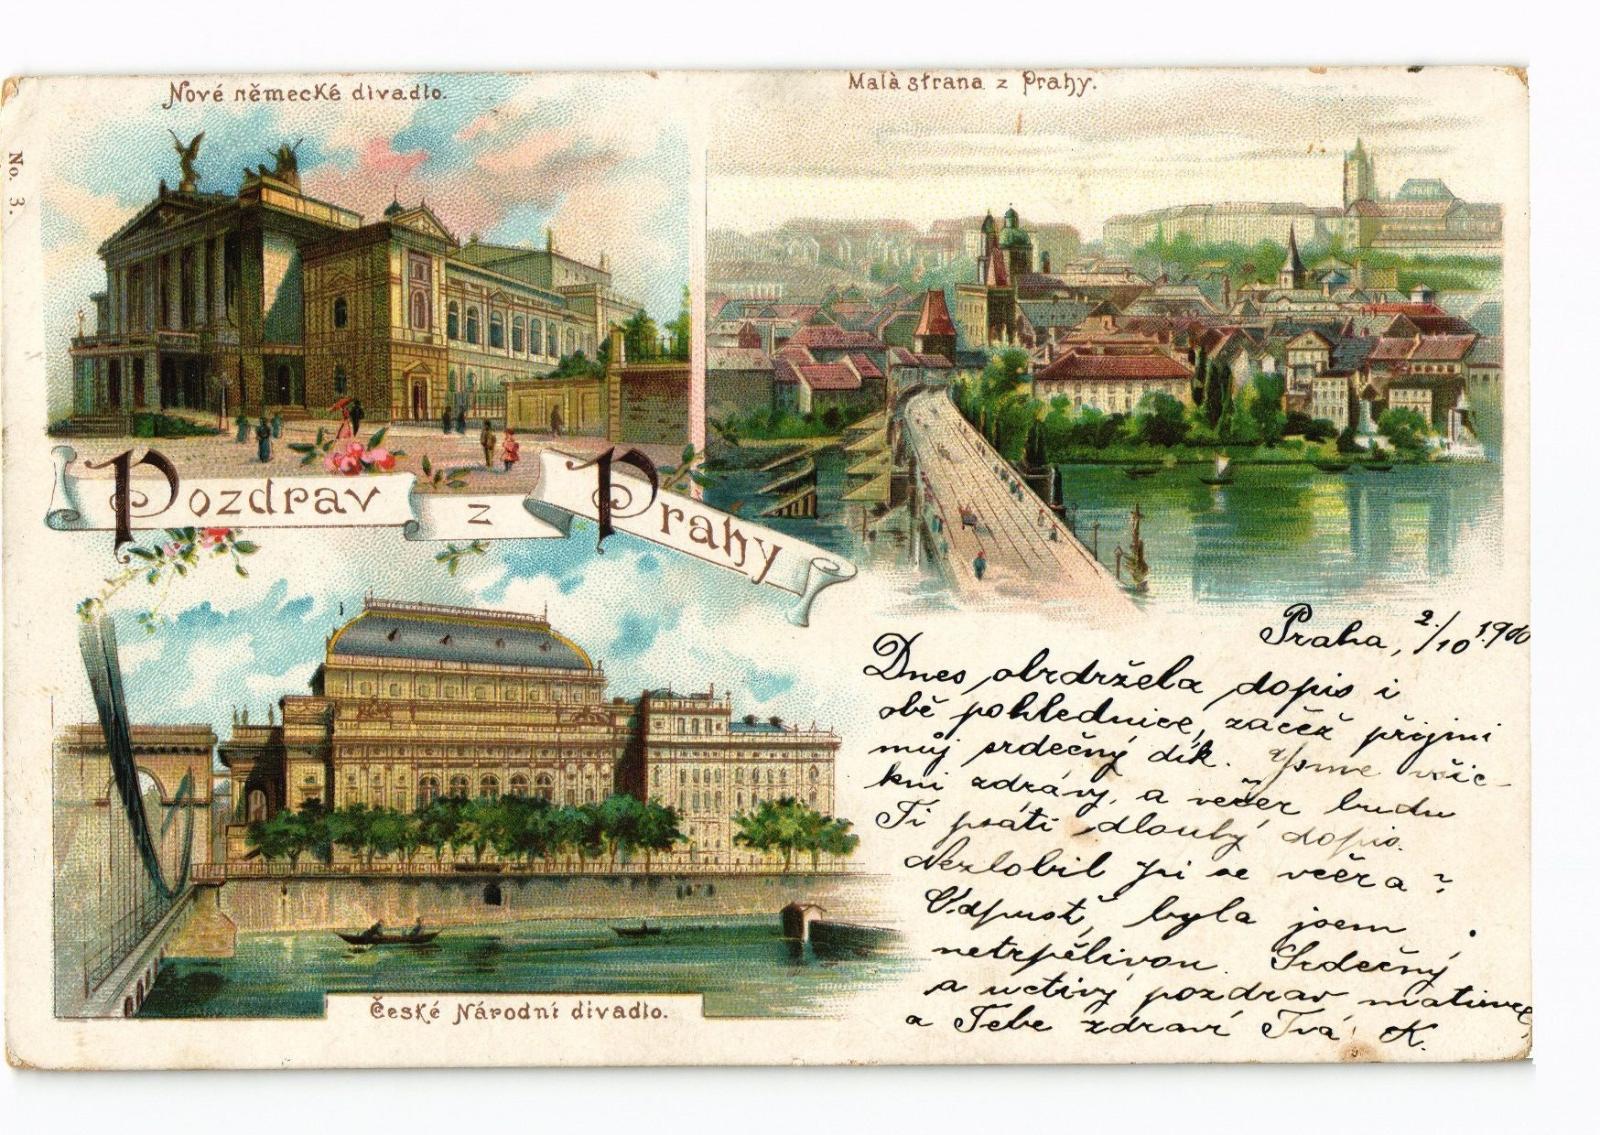 Nové německé divadlo.
Malà strana z Prahy.
No. 3.
Pozdrav z Prahy
České Národní divadlo.
Praha, 2./10 1900
Dnes obrdržela dopis i
obě pohlednice, začež přijmi
můj srdečný dík. Jsme všic-
kni zdrávy, a večer budu
Ti psáti dlouhý dopis.
Nezlobil jsi se včera?
Odpusť, byla jsem
netrpělivou. Srdečný
a uctivý pozdrav matince
a Tebe zdraví Tvá K.